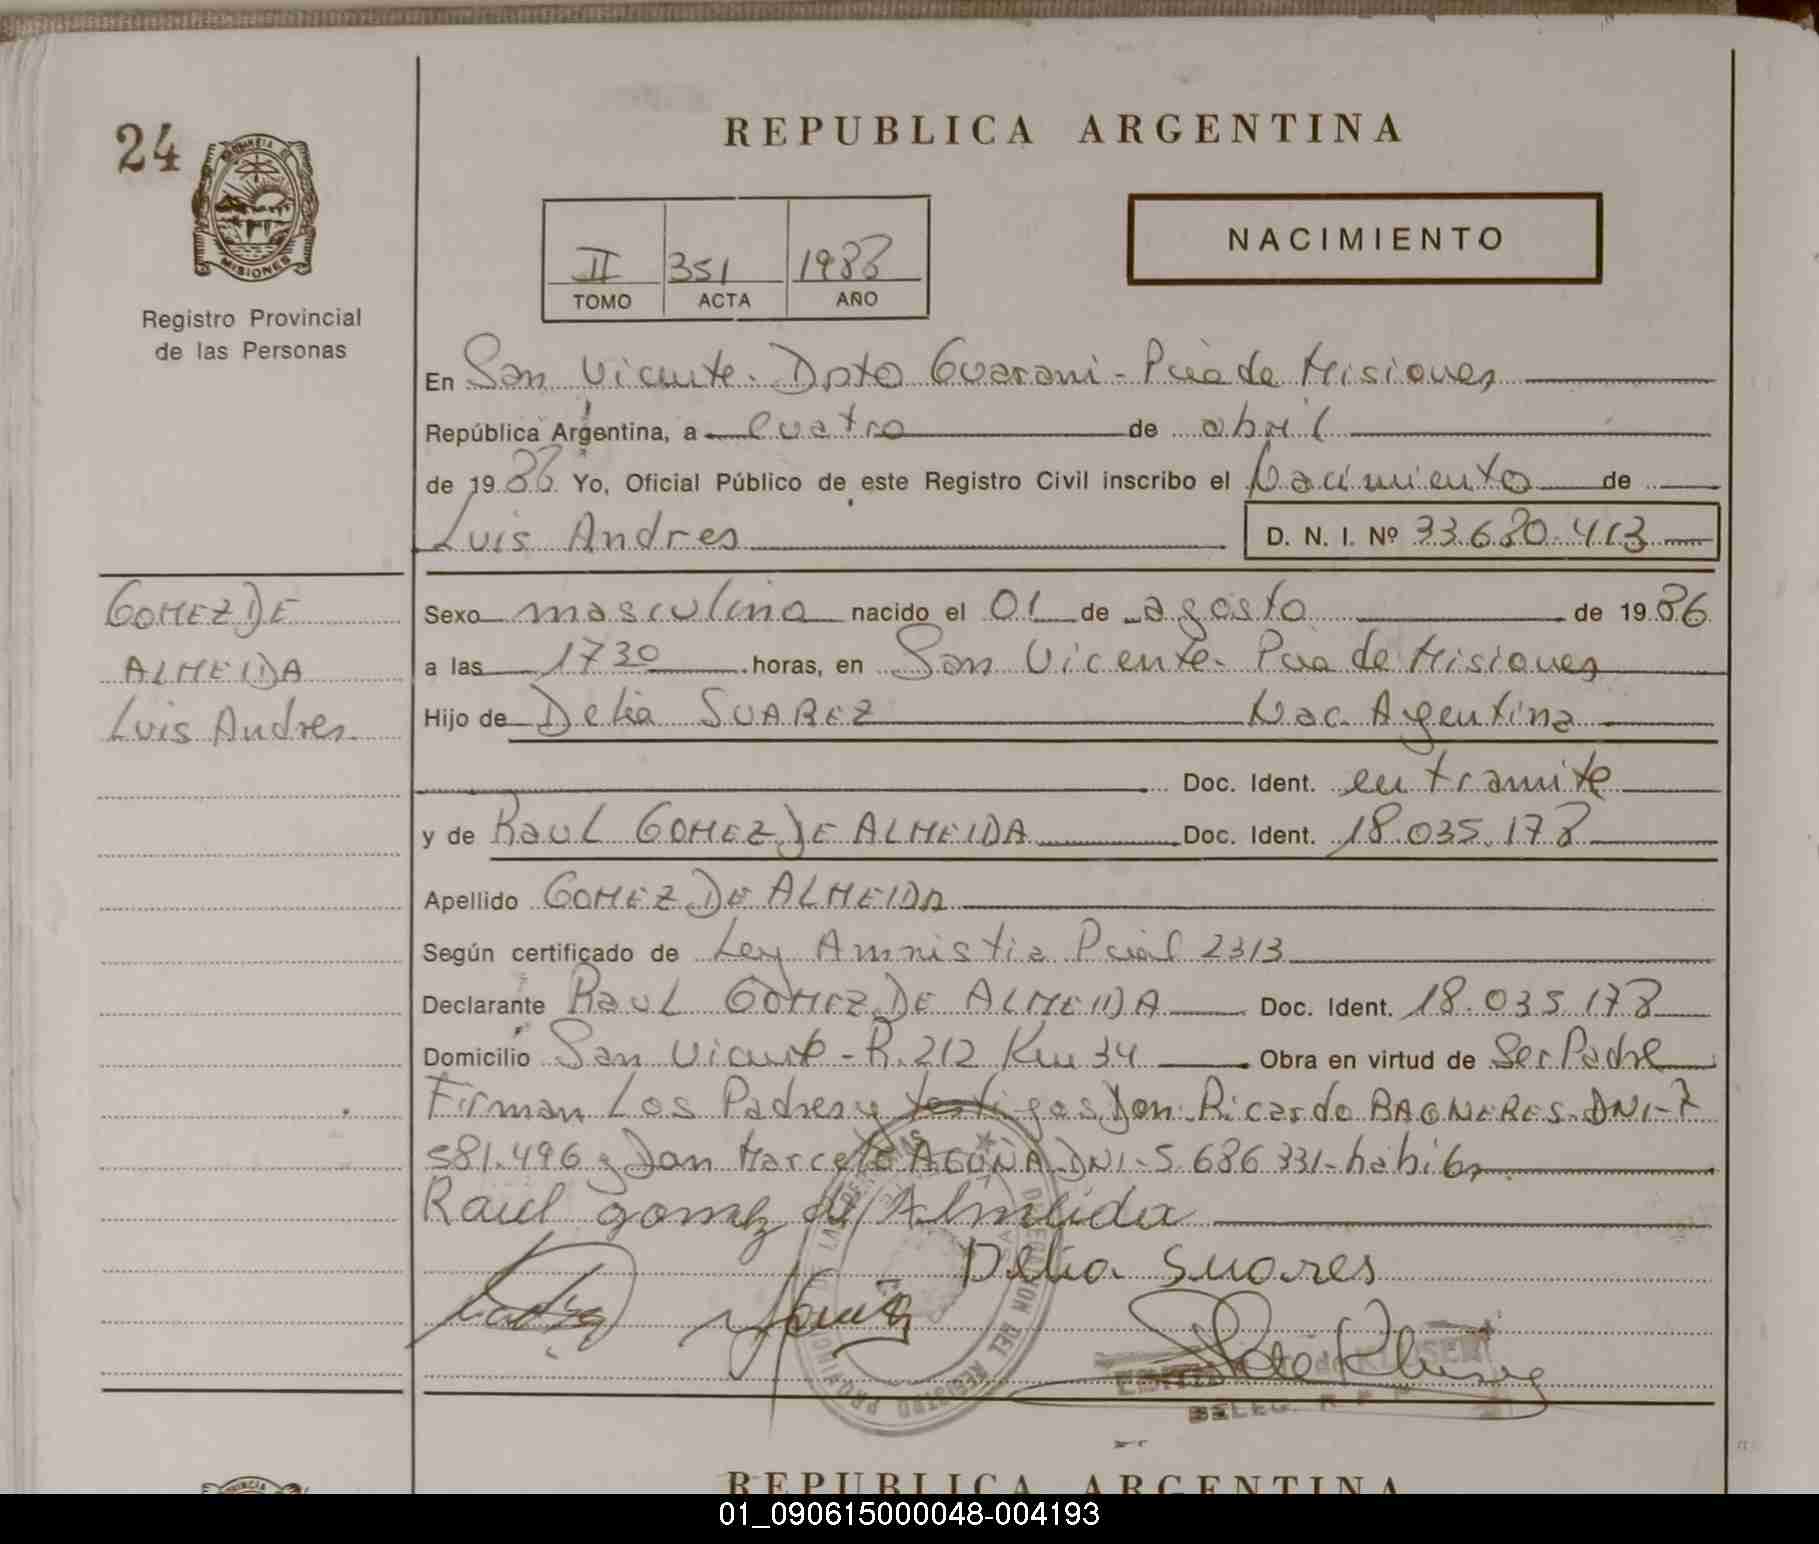 24
PROVINCIA DE
MISIONES
Registro Provincial
de las Personas
REPUBLICA ARGENTINA
NACIMIENTO
II 351 1988
TOMO ACTA AÑO
En San Vicente. Dpto Guarani - Pcia de Misiones
República Argentina, a cuatro de abril
de 1988 Yo, Oficial Público de este Registro Civil inscribo el Nacimiento de
Luis Andres D. N. I. Nº 33.680.413
GOMEZ DE
ALMEIDA
Luis Andres
Sexo masculino nacido el 01 de agosto de 1986
a las 1730 horas, en San Vicente. Pcia de Misiones
Hijo de Delia SUAREZ Nac. Argentina
Doc. Ident. en tramite
y de Raul GOMEZ DE ALMEIDA Doc. Ident. 18.035.178
Apellido GOMEZ DE ALMEIDA
Según certificado de Ley Amnistia Pcial 2313
Declarante Raul GOMEZ DE ALMEIDA Doc. Ident. 18.035.178
Domicilio San Vicente - R. 212 Km 34 Obra en virtud de Ser Padre
Firman Los Padres y testigos Don Ricardo BAGNERES. DNI-7
581.496 y Don Marcelo ACUÑA DNI-5.686.331-habiles
Raul gomez de Almeida
Delia Suares
DIRECCION DEL REGISTRO PROVINCIAL
DELEG. R.
REPUBLICA ARGENTINA
01_090615000048-004193